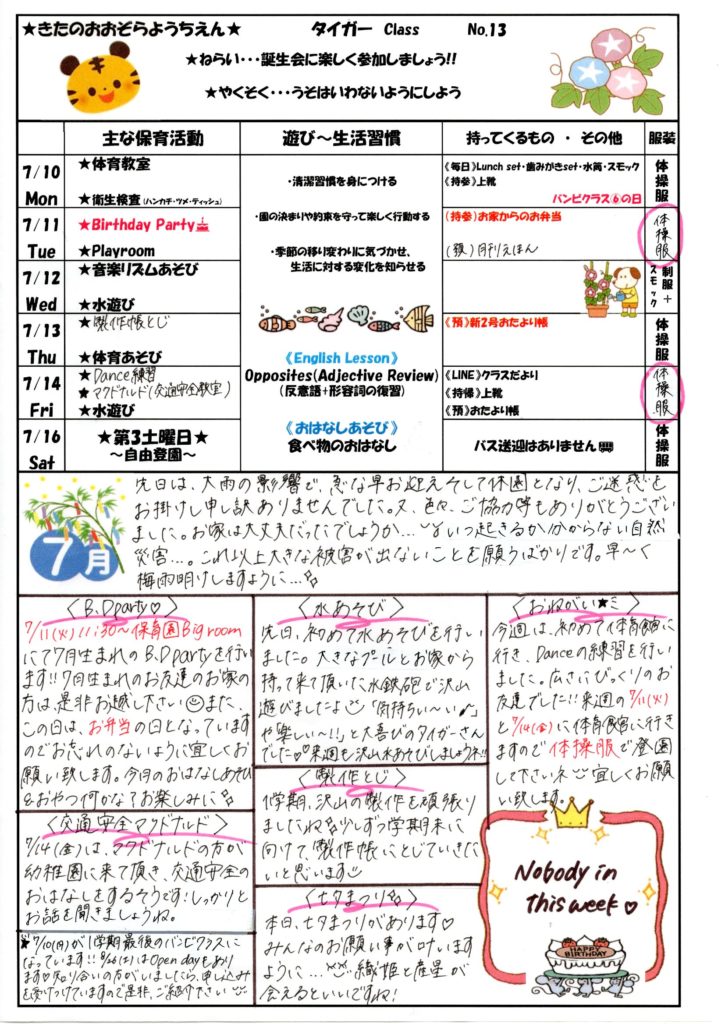 ★きたのおおぞらようちえん★ タイガー Class No.13
★ねらい・・・誕生会に楽しく参加しましょう!!
★やくそく・・・うそはいわないようにしよう
主な保育活動 遊び～生活習慣 持ってくるもの ・ その他 服装
7/10 Mon
★体育教室
★衛生検査(ハンカチ・ツメ・ティッシュ)
・清潔習慣を身につける
《毎日》Lunch set・歯みがきset・水筒・スモック
《持参》上靴
バンビクラス⑥の日
体操服
7/11 Tue
★Birthday Party
★Playroom
・園の決まりや約束を守って楽しく行動する
・季節の移り変わりに気づかせ、
生活に対する変化を知らせる
(持参)お家からのお弁当
(預)月刊えほん
体操服
7/12 Wed
★音楽リズムあそび
★水遊び
制服+スモック
7/13 Thu
★製作帳とじ
★体育あそび
《English Lesson》
Opposites(Adjective Review)
(反意語+形容詞の復習)
《預》新2号おたより帳
体操服
7/14 Fri
★Dance練習
★マクドナルド(交通安全教室)
★水遊び
《LINE》クラスだより
《持帰》上靴
《預》おたより帳
体操服
7/16 Sat
★第3土曜日★
～自由登園～
《おはなしあそび》
食べ物のおはなし
バス送迎はありません
体操服
7月
先日は、大雨の影響で、急な早お迎えそして休園となり、ご迷惑を
お掛けし申し訳ありませんでした。又、色々、ご協力等もありがとうござい
ました。お家は大丈夫だったでしょうか…いつ起きるか分からない自然
災害…。これ以上大きな被害が出ないことを願うばかりです。早～く
梅雨明けしますように…
〈B.Dparty♡〉
7/11(火)11:30～保育園Big room
にて7月生まれのB.Dpartyを行い
ます!!7月生まれのお友達のお家の
方は、是非お越し下さい また、
この日は、お弁当の日となっています
のでお忘れのないように宜しくお
願い致します。今月のおはなしあそび
&おやつ何かな?お楽しみに
〈交通安全マクドナルド〉
7/14(金)は、マクドナルドの方が
幼稚園に来て頂き、交通安全の
おはなしをするそうです!しっかりと
お話を聞きましょうね。
★7/10(月)が1学期最後のバンビクラスに
なっています!! (土)はOpen dayもあり
ます♡お知り合いの方がいましたら、申し込みを
受けつけていますので是非、ご紹介下さい
〈水あそび〉
先日、初めて水あそびを行い
ました。大きなプールとお家から
持って来て頂いた水鉄砲で沢山
遊びましたよ 「気持ちい～い♪」
や楽しい～!!」と大喜びのタイガーさん
でした♡来週も沢山水あそびしましょうネ!!
〈製作とじ〉
1学期、沢山の製作を頑張り
ましたね 少しずつ学期末に
向けて、製作帳にとじていきた
いと思います
〈七夕まつり〉
本日、七夕まつりがあります♡
みんなのお願い事が叶います
ように… 織姫と彦星が
会えるといいですね!
〈おねがい★ミ〉
今週は、初めて体育館に
行き、Danceの練習を行い
ました。広さにびっくりのお
友達でした!!来週の7/11(火)
と7/14(金)に体育館に行きま
すので体操服で登園
して下さいネ 宜しくお願
い致します。
Nobody in
this week♡
HAPPY
BIRTHDAY